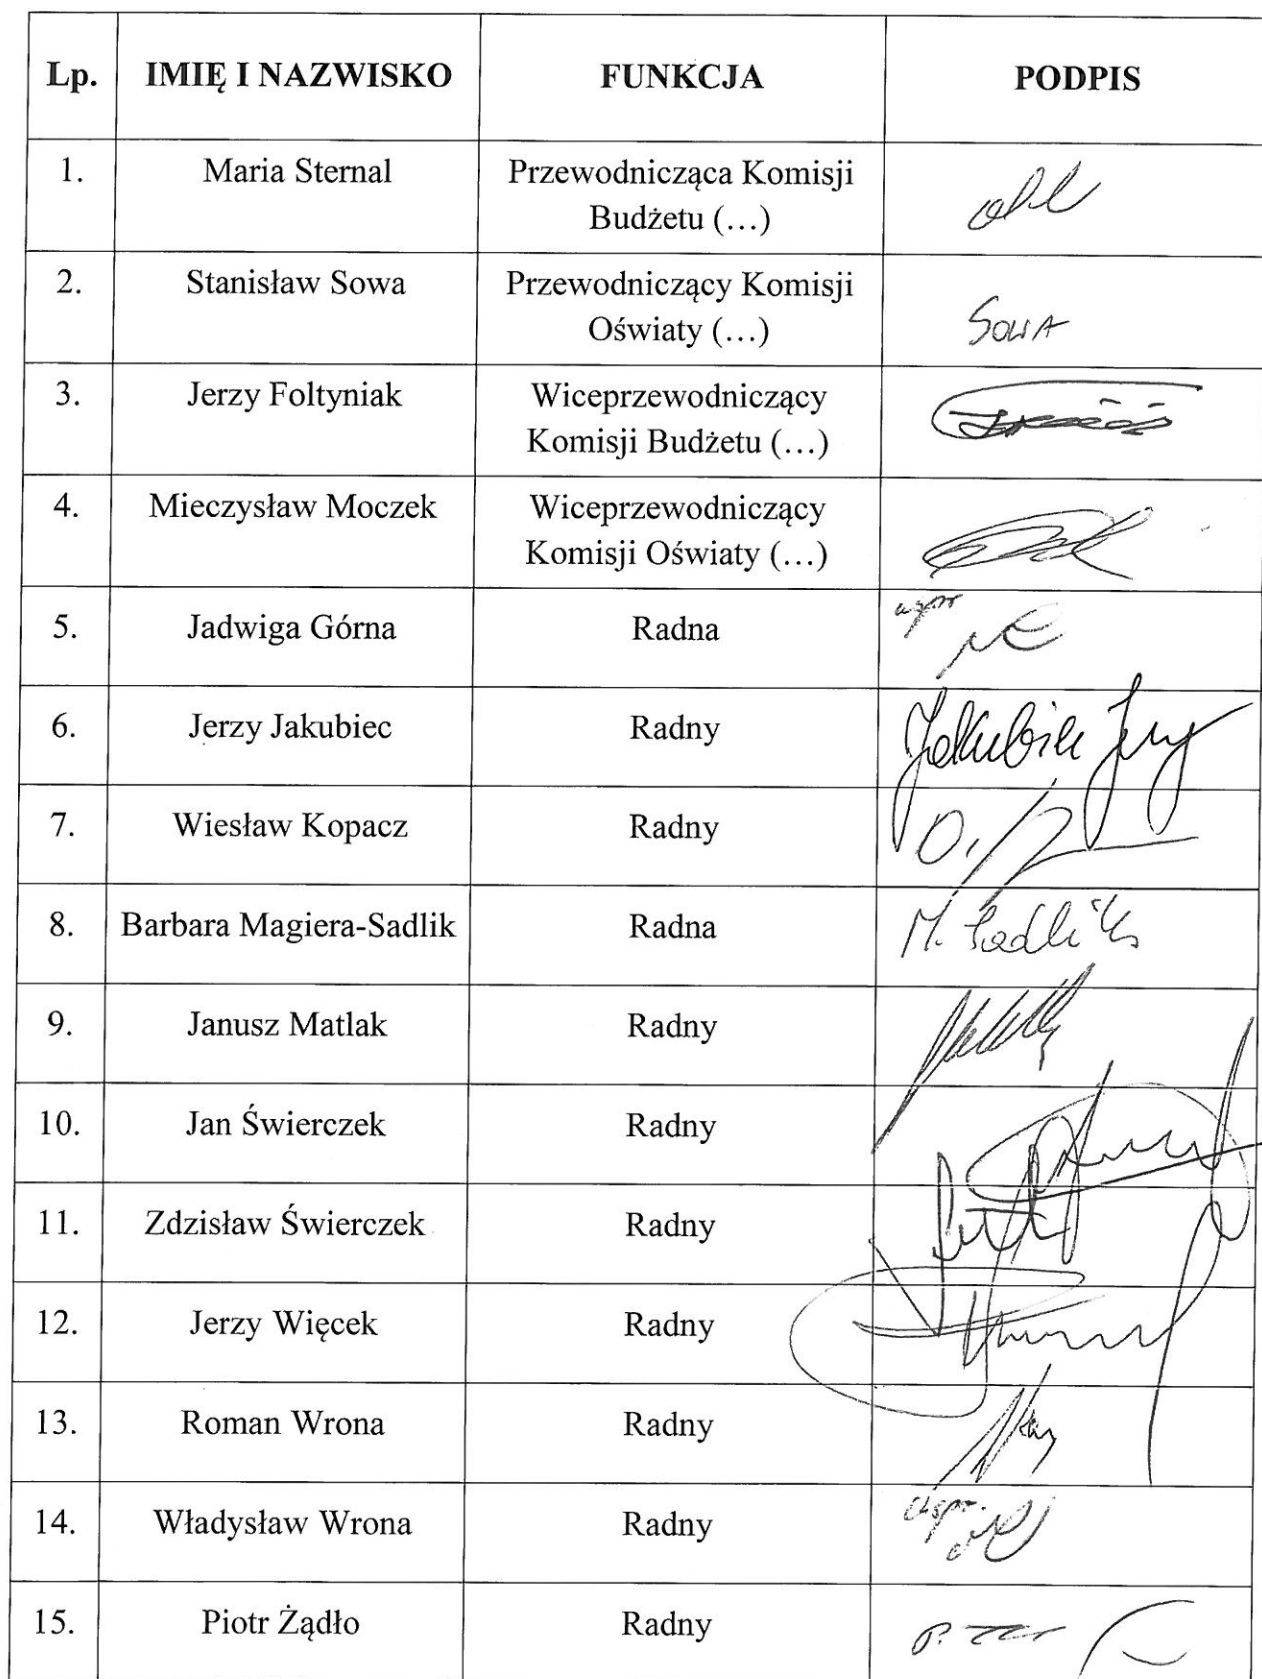 Lp. IMIĘ I NAZWISKO FUNKCJA PODPIS
1. Maria Sternal Przewodnicząca Komisji
Budżetu (…)
2. Stanisław Sowa Przewodniczący Komisji
Oświaty (…) Sowa
3. Jerzy Foltyniak Wiceprzewodniczący
Komisji Budżetu (…)
4. Mieczysław Moczek Wiceprzewodniczący
Komisji Oświaty (…)
5. Jadwiga Górna Radna uspr
6. Jerzy Jakubiec Radny Jakubiec Jerzy
7. Wiesław Kopacz Radny
8. Barbara Magiera-Sadlik Radna M. Sadlik
9. Janusz Matlak Radny
10. Jan Świerczek Radny
11. Zdzisław Świerczek Radny
12. Jerzy Więcek Radny
13. Roman Wrona Radny
14. Władysław Wrona Radny uspr.
15. Piotr Żądło Radny